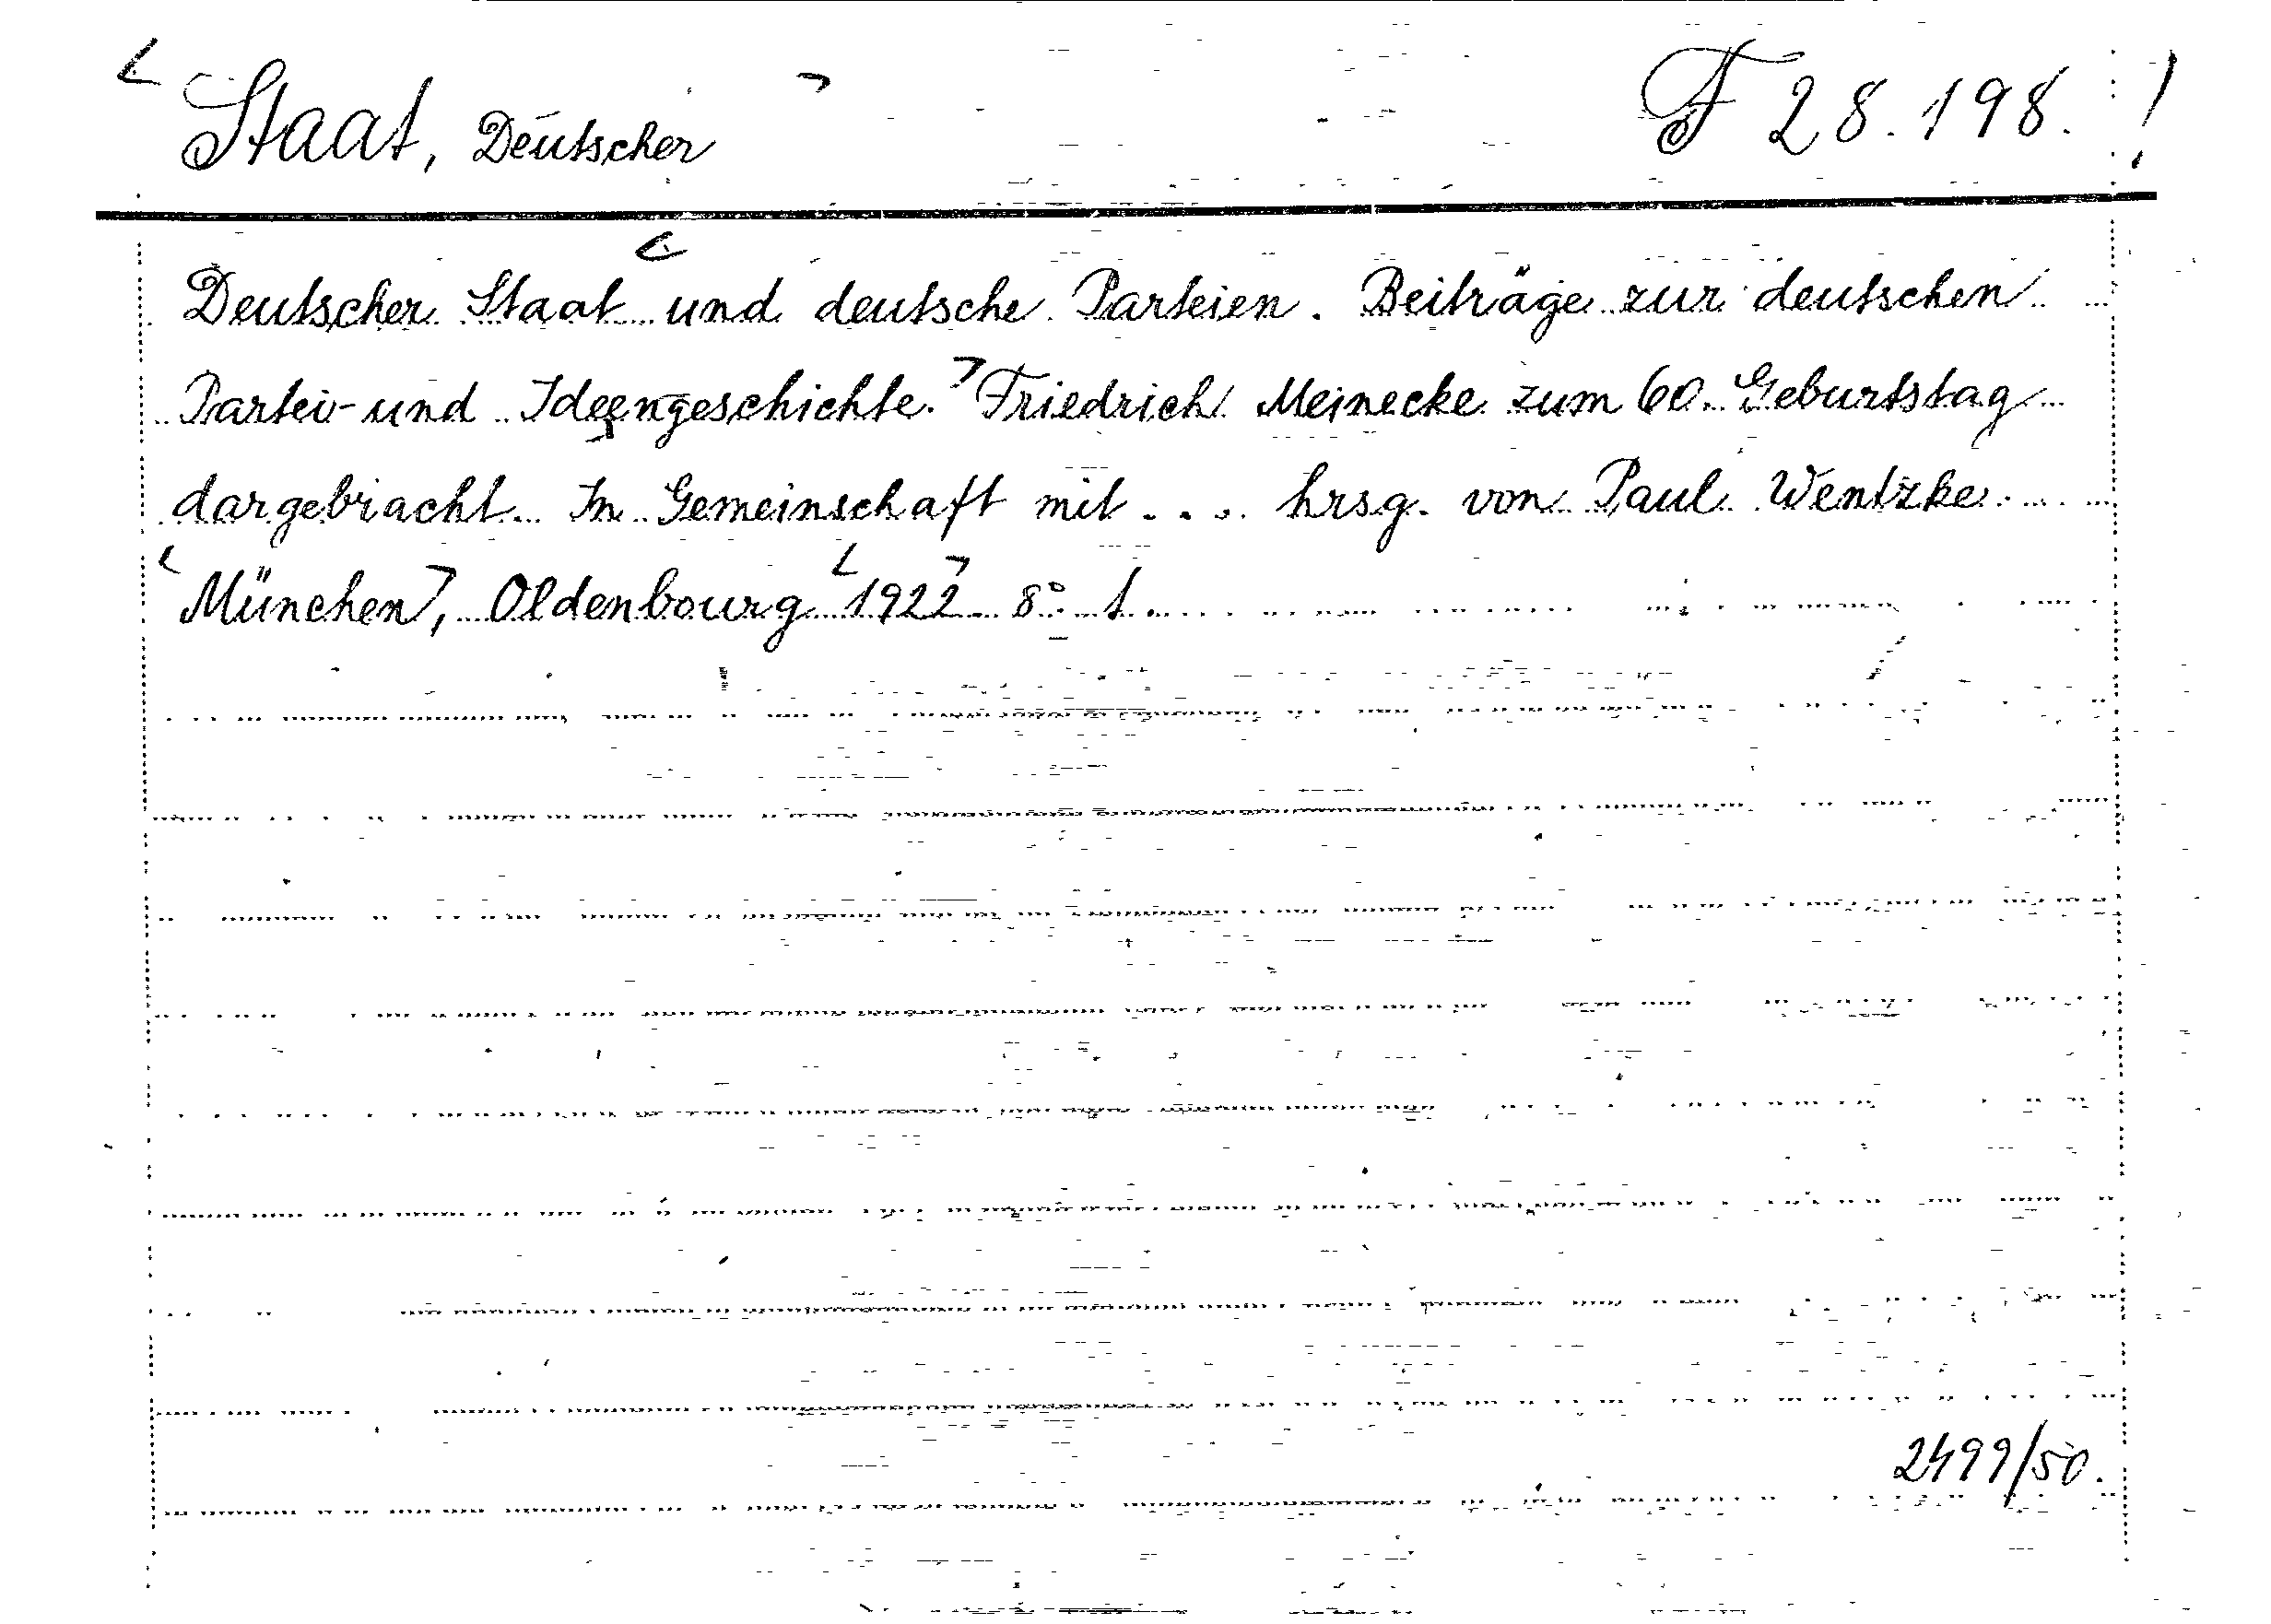 Staat, Deutscher F 28.198. !
Deutscher Staat und deutsche Parteien. Beiträge zur deutschen
Partei- und Ideengeschichte. Friedrich Meinecke zum 60. Geburtstag
dargebracht. In Gemeinschaft mit ... hrsg. von Paul Wentzke.
München, Oldenbourg 1922 8°.
2499/50.